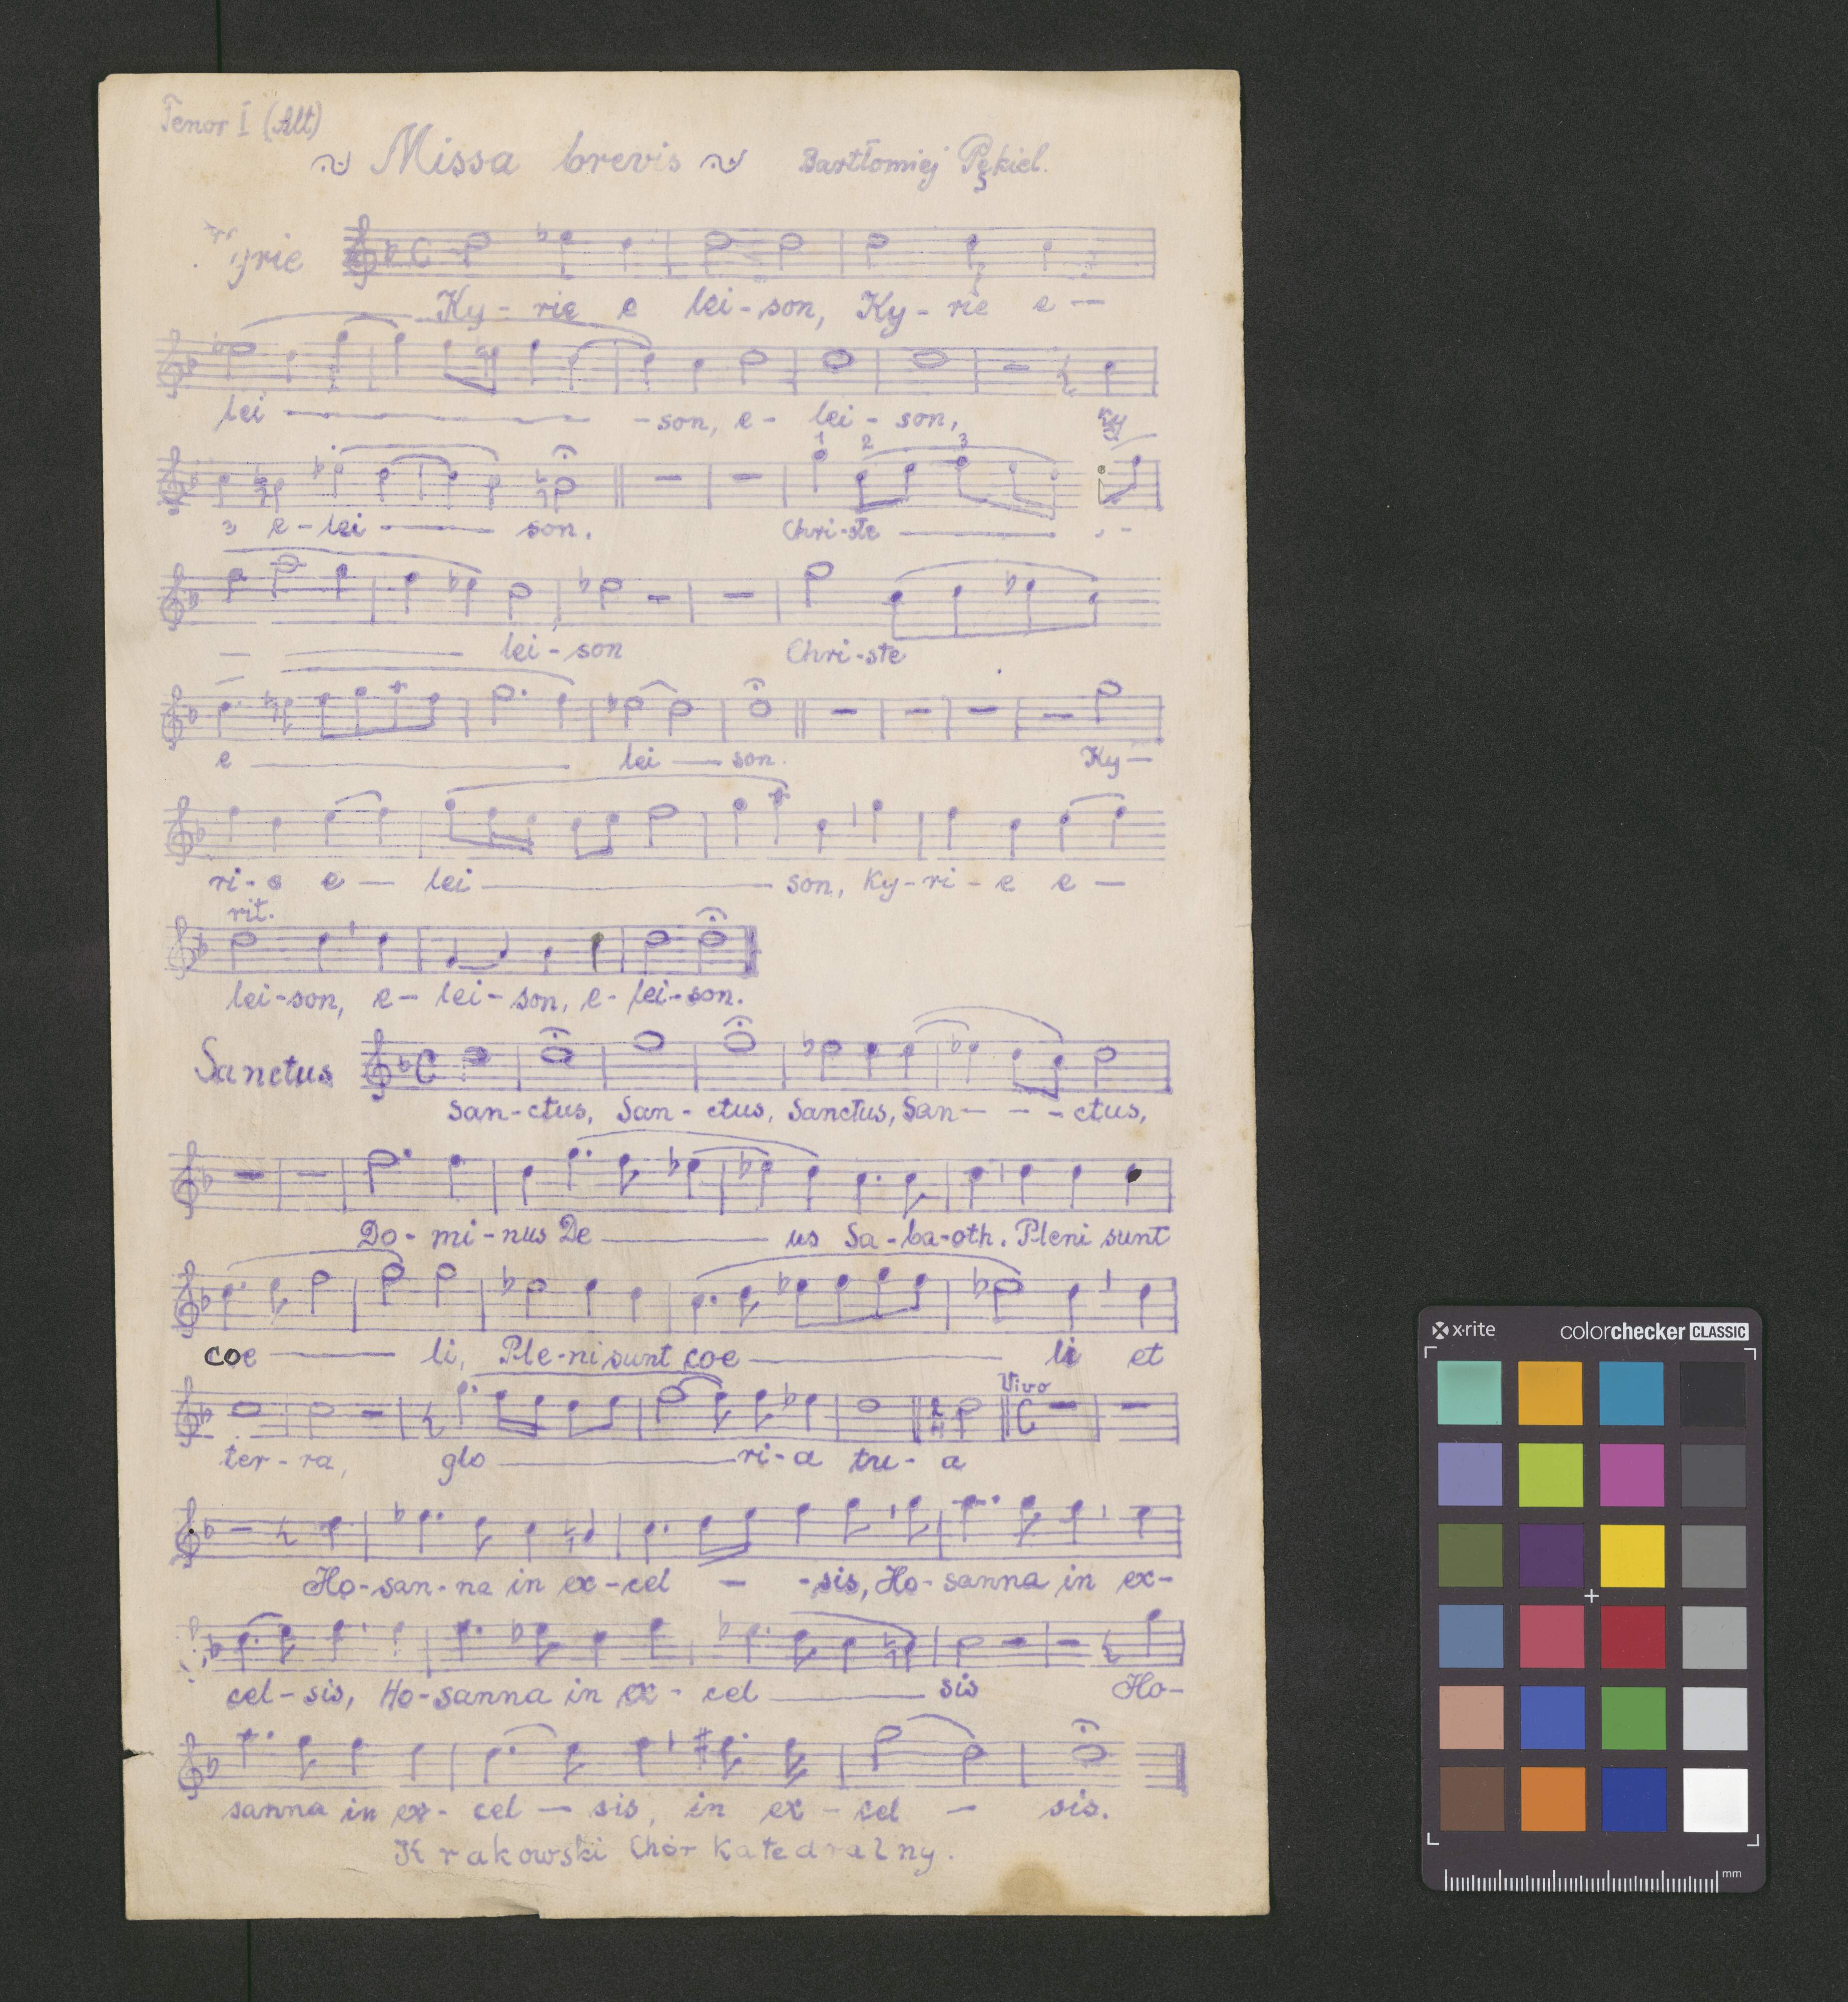 Tenor I (Alt)
Missa brevis Bartłomiej Pękiel.
Ky - rie e lei - son, Ky - rie e —
lei — - son, e - lei - son, Ky
e - lei — son. 1 2 3 Chri - ste —
— lei - son Chri - ste
e — lei — son. Ky —
ri - e e — lei — son, Ky - ri - e e —
rit.
lei - son, e - lei - son, e - lei - son.
Sanctus
San - ctus, San - ctus, Sanctus, San — - - ctus,
Do - mi - nus De — us Sa - ba - oth. Pleni sunt
coe — li, Ple - ni sunt coe — li et
Vivo
ter - ra, glo — ri - a tu - a
Ho - san - na in ex - cel — - sis, Ho - sanna in ex -
cel - sis, Ho - sanna in ex - cel — sis Ho -
sanna in ex - cel — sis, in ex - cel — sis.
Krakowski Chór Katedralny.
x·rite colorchecker CLASSIC
mm